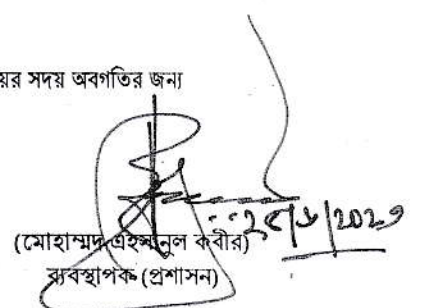 য়ের সদয় অবগতির জন্য
(মোহাম্মদ এহসানুল কবীর)
ব্যবস্থাপক (প্রশাসন)